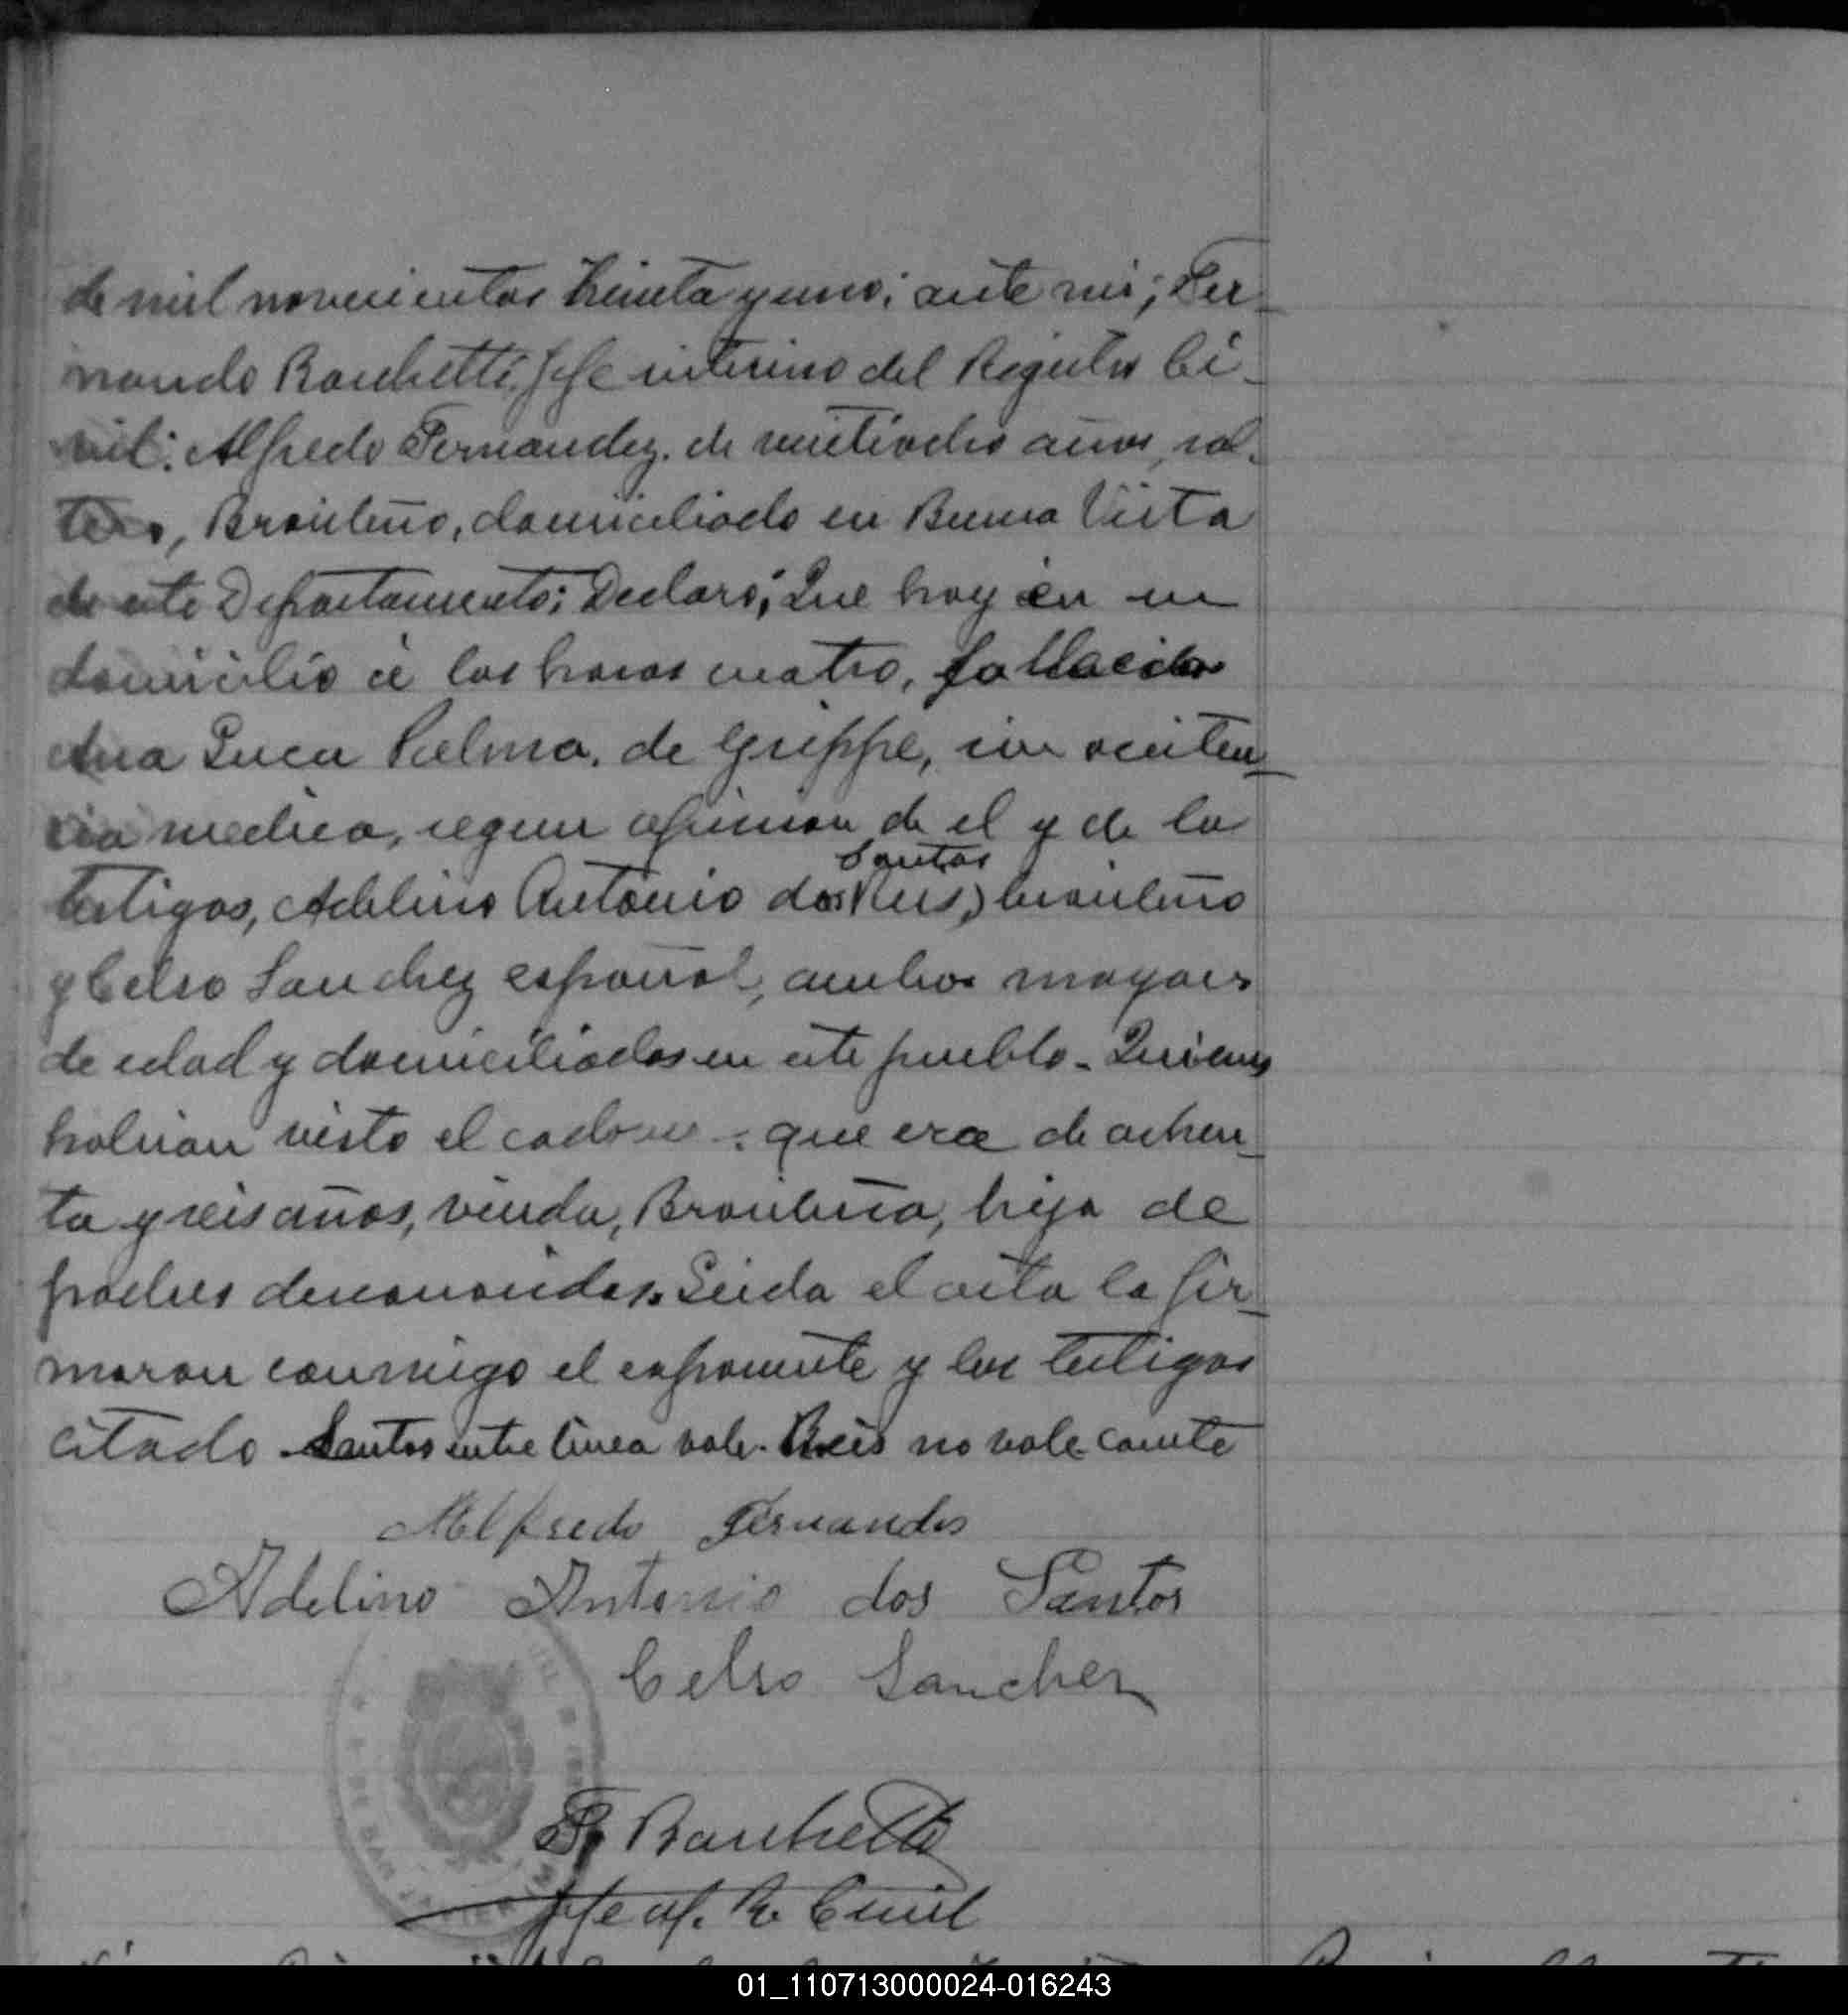 de mil novecientos treinta y uno; ante mi; Fer-
nando Barchetti, Jefe interino del Registro Ci-
vil: Alfredo Fernandez, de veintiocho años, sol-
tero, Brasileño, domiciliado en Buena Vista
de este Departamento; Declaró; Que hoy en su
domicilio á las horas cuatro, fallecida
Ana Luca Palma, de Grippe, sin asisten-
cia medica, segun opinion de el y de los
Santos
testigos, Adelino Antonio dos Reis, brasileño
y Celso Sanchez español, ambos mayores
de edad y domiciliados en este pueblo. Quienes
habian visto el cadaver. que era de ochen-
ta y seis años, viuda, Brasileña, hija de
padres desconocidos. Leida el acta la fir-
maron conmigo el exponente y los testigos
citado Santos entre linea vale. Reis no vale conste
Alfredo Fernandes
Adelino Antonio dos Santos
Celso Sanchez
F. Barchetti
Jefe of. R. Civil
01_110713000024-016243